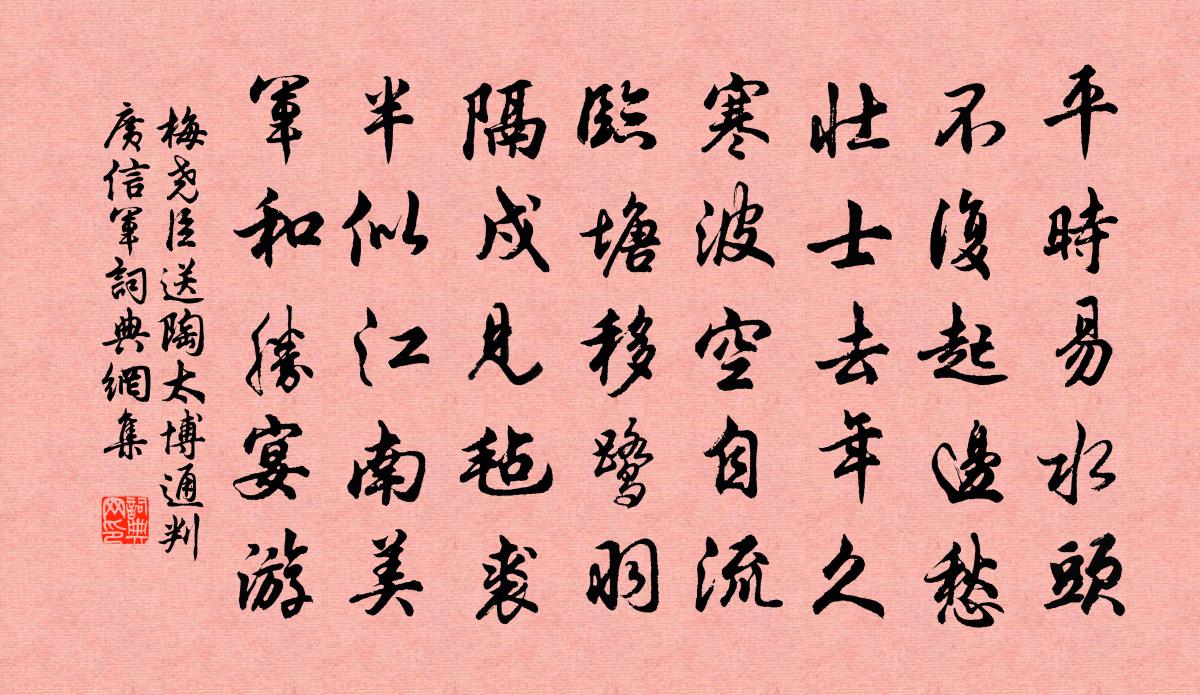 平時易水頭
不復起邊愁
壯士去年久
寒波空自流
臨塘移鷺羽
隔戍見毡裘
半似江南美
軍和勝宴游
梅堯臣送陶太博通判
廣信軍詞典網集
詞典网印